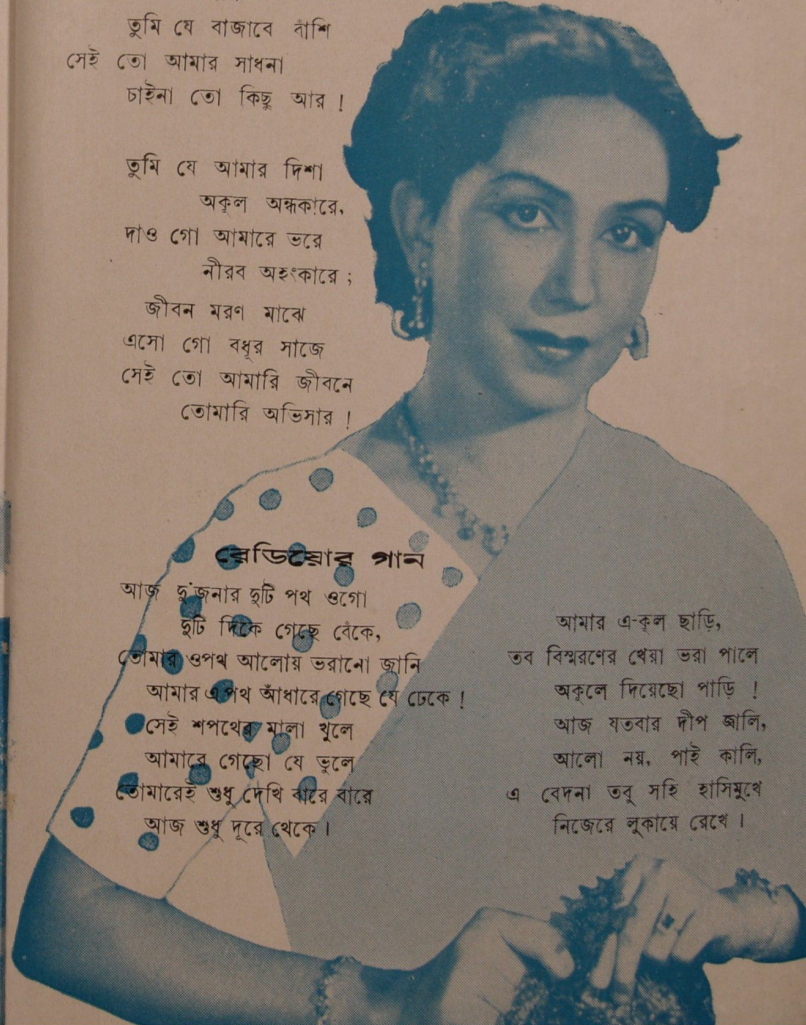 তুমি যে বাজাবে বাঁশি
সেই তো আমার সাধনা
চাইনা তো কিছু আর !
তুমি যে আমার দিশা
অকূল অন্ধকারে,
দাও গো আমারে ভরে
নীরব অহংকারে ;
জীবন মরণ মাঝে
এসো গো বধূর সাজে
সেই তো আমারি জীবনে
তোমারি অভিসার !
রেডিয়োর গান
আজ দু'জনার দুটি পথ ওগো
দুটি দিকে গেছে বেঁকে,
তোমার ওপথ আলোয় ভরানো জানি
আমার এপথ আঁধারে গেছে যে ঢেকে !
সেই শপথের মালা খুলে
আমারে গেছো যে ভুলে
তোমারেই শুধু দেখি বারে বারে
আজ শুধু দূরে থেকে ।
আমার এ-কূল ছাড়ি,
তব বিস্মরণের খেয়া ভরা পালে
অকূলে দিয়েছো পাড়ি !
আজ যতবার দীপ জ্বালি,
আলো নয়, পাই কালি,
এ বেদনা তবু সহি হাসিমুখে
নিজেরে লুকায়ে রেখে ।